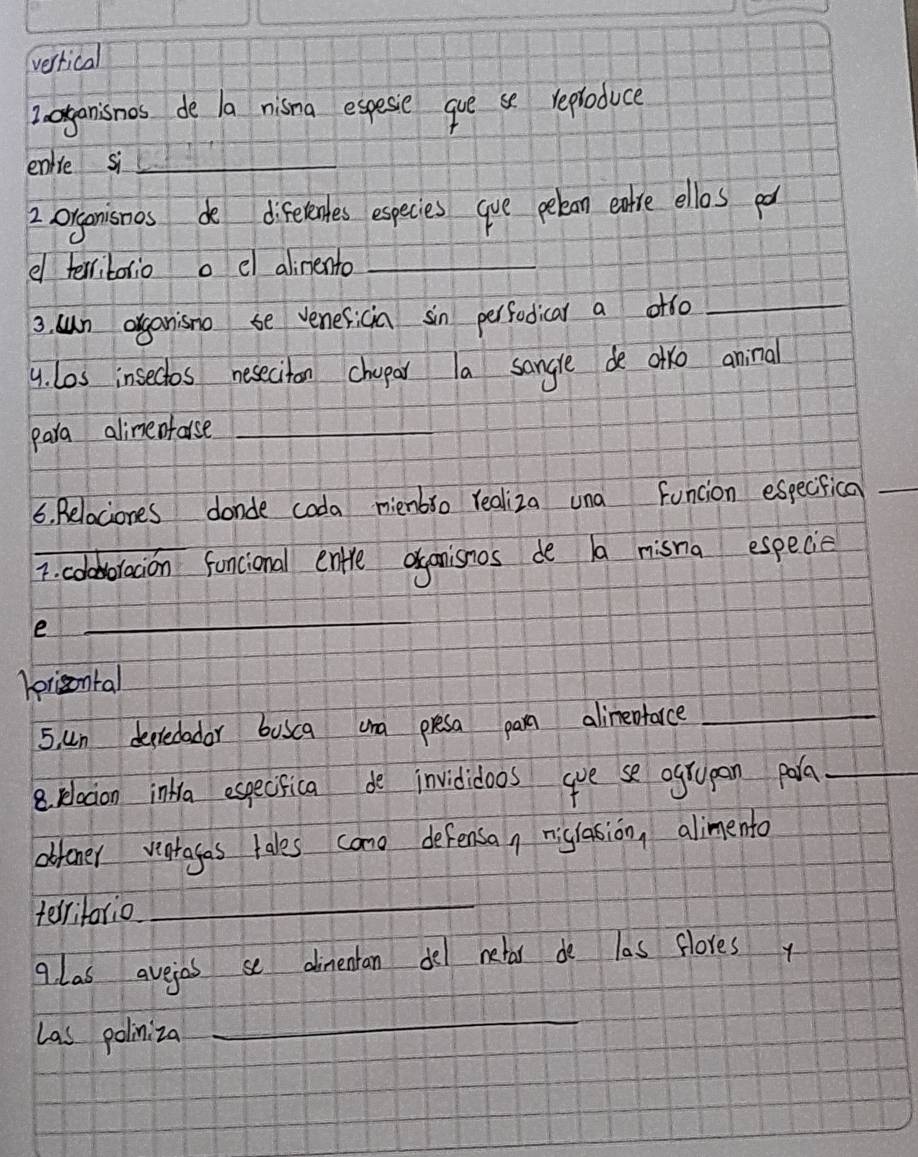 vertical
1.organismos de la nisma espesie que se reproduce
entre si
2 Organismos de diferentes especies que pelean entre ellos por
el territorio o el alimento
3. un organismo se veneficia sin perfudicar a otro
4. Los insectos nesecitan chupar la sangre de otro animal
para alimentarse
6. Relaciones donde cada miembro realiza una funcion especifica
7. colaboración funcional entre organismos de la misma especie
e
horizontal
5, un depredador busca una presa para alimentarce
8. relacion intra especifica de invididoos que se agrupan para
obtener ventagas tales como defensa, migrasión, alimento
territorio
9. Las avejas se alimentan del netar de las flores y
Las poliniza